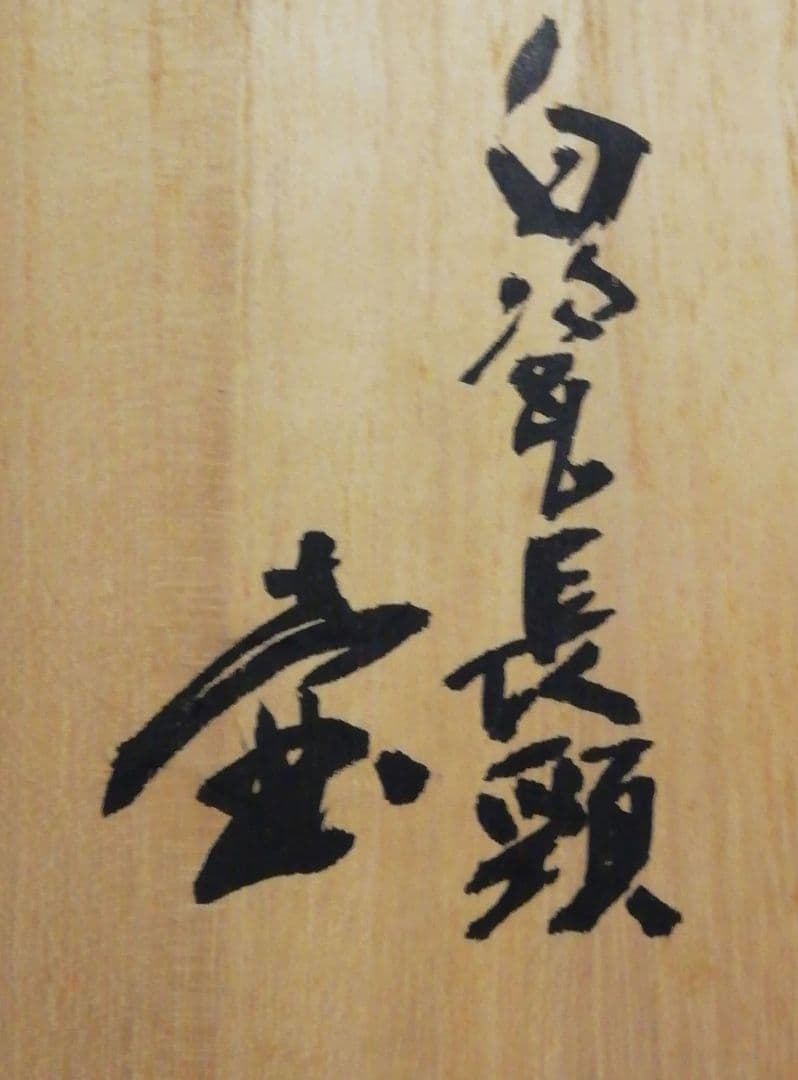 白瓷長頸
壷